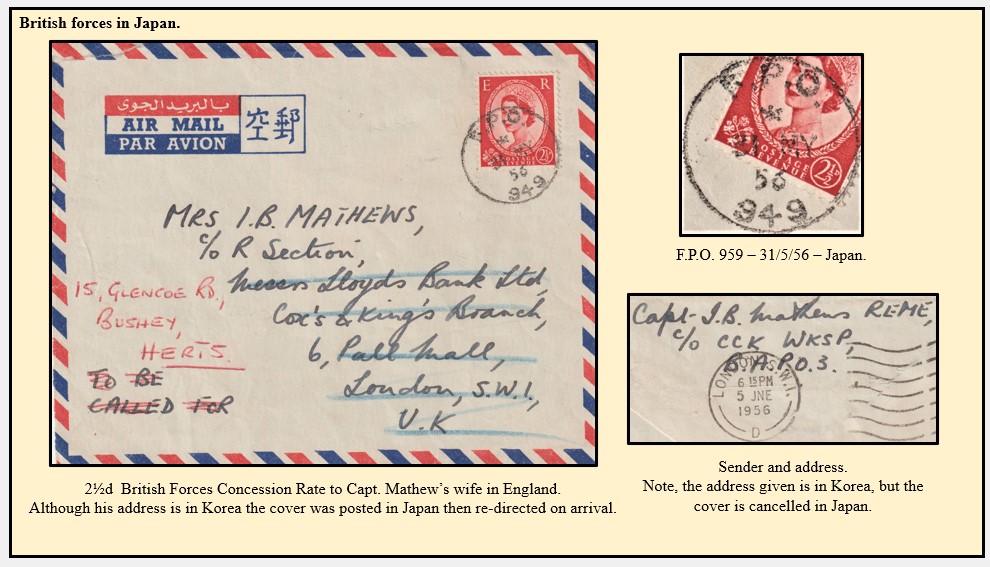 British forces in Japan.
بالبريد الجوى
AIR MAIL
PAR AVION
空郵
E R
POSTAGE
REVENUE
2½D
F.P.O.
*
31 MY
56
949
MRS I.B. MATHEWS,
c/o R Section,
Messrs Lloyds Bank Ltd,
Cox's & King's Branch,
6, Pall Mall,
London, S.W.1,
U.K
15, GLENCOE RD.,
BUSHEY,
HERTS.
TO BE
CALLED FOR
2½d British Forces Concession Rate to Capt. Mathew's wife in England.
Although his address is in Korea the cover was posted in Japan then re-directed on arrival.
F.P.O.
*
31 MY
56
949
POSTAGE
REVENUE
2½D
F.P.O. 959 – 31/5/56 – Japan.
Capt. I.B. Mathews REME,
c/o CCK WKSP,
B.A.P.O.3.
LONDON S.W.1.
6 15 PM
5 JNE
1956
D
Sender and address.
Note, the address given is in Korea, but the
cover is cancelled in Japan.